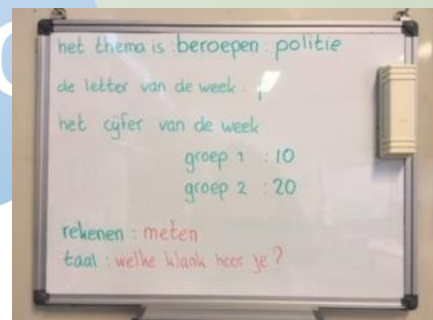 het thema is : beroepen : politie
de letter van de week :
het cijfer van de week
groep 1 : 10
groep 2 : 20
rekenen : meten
taal : welke klank hoor je ?